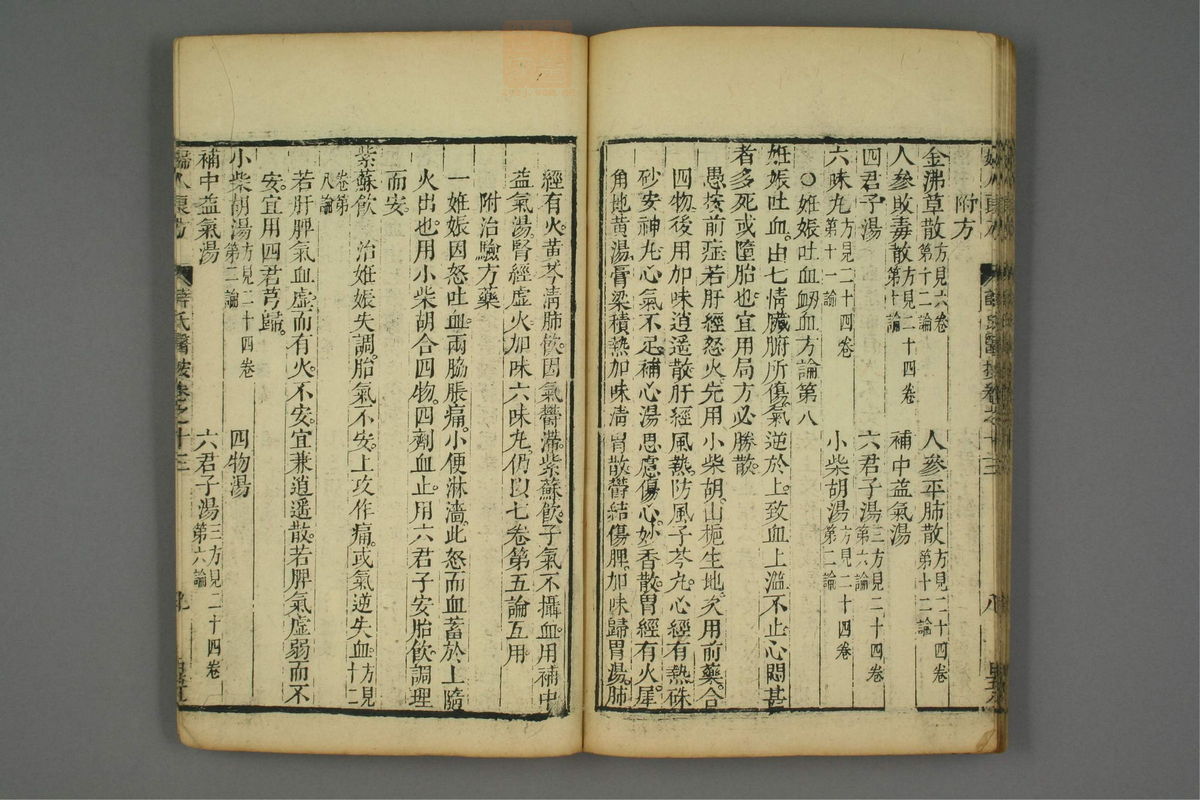 附方
金沸草散方見六卷第十二論 人參平肺散方見二十四卷第十二論
人參敗毒散方見二十四卷第十論 補中益氣湯
四君子湯 六君子湯三方見二十四卷第六論
六味丸方見二十四卷第十一論 小柴胡湯方見二十四卷第二論
○姙娠吐血衂血方論第八
姙娠吐血由七情臟腑所傷氣逆於上致血上溢不止心悶甚
者多死或墮胎也宜用局方必勝散
愚按前症若肝經怒火先用小柴胡山梔生地次用前藥合
四物後用加味逍遥散肝經風熱防風子芩丸心經有熱硃
砂安神丸心氣不足補心湯思慮傷心妙香散胃經有火犀
角地黃湯膏粱積熱加味清胃散鬱結傷脾加味歸脾湯肺
經有火黃芩清肺飲因氣鬱滯紫蘇飲子氣不攝血用補中
益氣湯腎經虛火加味六味丸仍以七卷第五論互用
附治驗方藥
一姙娠因怒吐血兩脇脹痛小便淋濇此怒而血蓄於上隨
火出也用小柴胡合四物四劑血止用六君子安胎飲調理
而安
紫蘇飲 治姙娠失調胎氣不安上攻作痛或氣逆失血方見十二
卷第八論
若肝脾氣血虛而有火不安宜兼逍遥散若脾氣虛弱而不
安宜用四君芎歸
小柴胡湯方見二十四卷第二論 四物湯
補中益氣湯 六君子湯三方見二十四卷第六論
薛氏醫按卷之十三